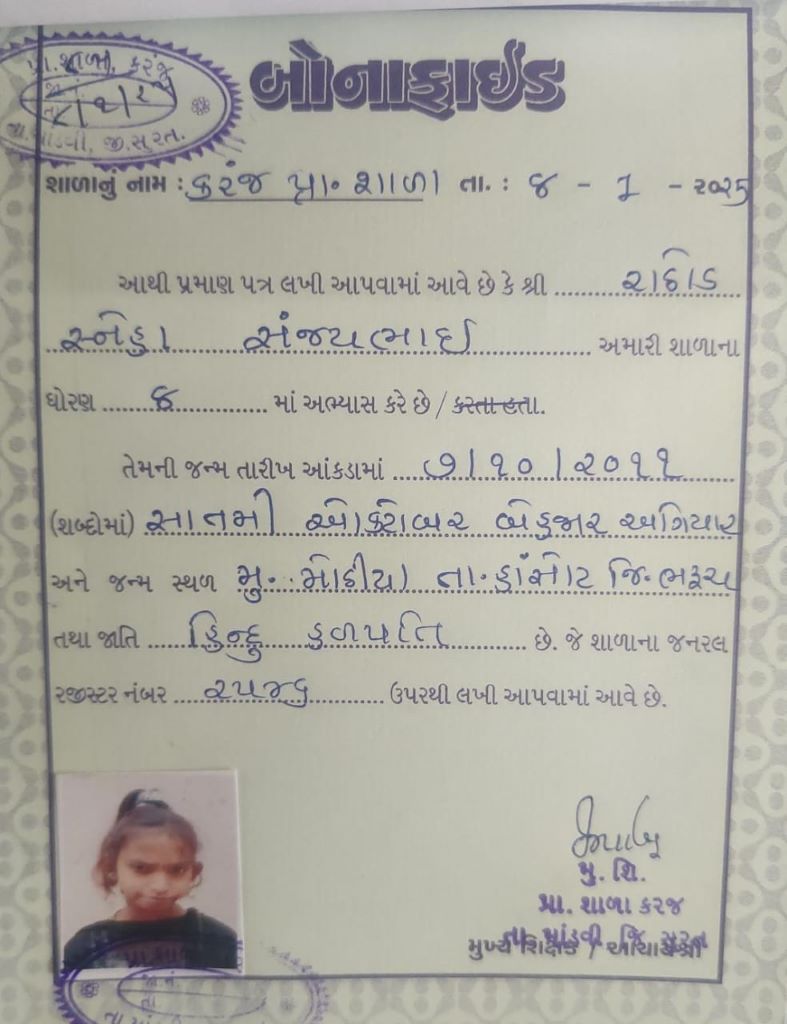 પ્રા. શાળા, કરંજ
જા
તા
તા. માંડવી, જી. સુરત.
બોનાફાઈડ
શાળાનું નામ : કરંજ પ્રા. શાળા તા. : ૪ - 1 - ૨૦૨5
આથી પ્રમાણ પત્ર લખી આપવામાં આવે છે કે શ્રી ........ રાઠોડ
સ્નેહા સંજયભાઈ ........ અમારી શાળાના
ધોરણ ........ ૪ ........ માં અભ્યાસ કરે છે / કરતા હતા.
તેમની જન્મ તારીખ આંકડામાં .... ૭/૧૦/૨૦૧૧
(શબ્દોમાં) સાતમી ઓક્ટોબર બેહજાર અગિયાર
અને જન્મ સ્થળ મુ. મોઠીયા તા. હાંસોટ જિ. ભરૂચ
તથા જાતિ .... હિન્દુ હળપતિ ........ છે. જે શાળાના જનરલ
રજીસ્ટર નંબર .... ૨૫૪૬ ........ ઉપરથી લખી આપવામાં આવે છે.
મુ. શિ.
પ્રા. શાળા કરંજ
તા. માંડવી જિ. સુરત
મુખ્ય શિક્ષક / આચાર્યશ્રી
પ્રા. શાળા
જા. નં.
તા
તા. માંડવી